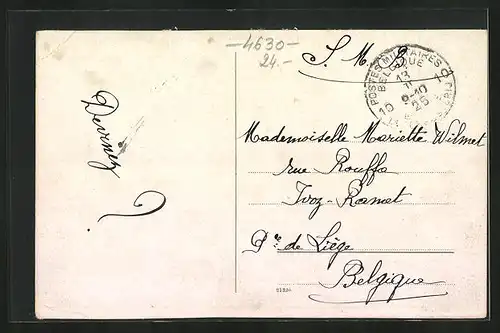 -4630-
24.-
S. M.
POSTES MILITAIRES
BELGIQUE
13
9-10
25
10 10
Devinez
?
Mademoiselle Mariette Wilmet
rue Rouffa
Ivoz-Ramet
Pce de Liège
Belgique